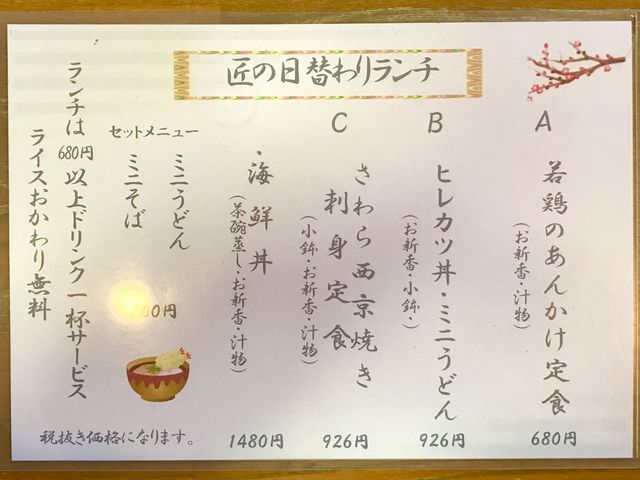 匠の日替わりランチ
A
若鶏のあんかけ定食
(お新香・汁物)
680円
B
ヒレカツ丼・ミニうどん
(お新香・小鉢・)
926円
C
さわら西京焼き
刺身定食
(小鉢・お新香・汁物)
926円
・海鮮丼
(茶碗蒸し・お新香・汁物)
1480円
セットメニュー
ミニうどん
ミニそば
00円
ランチは680円以上ドリンク一杯サービス
ライスおかわり無料
税抜き価格になります。